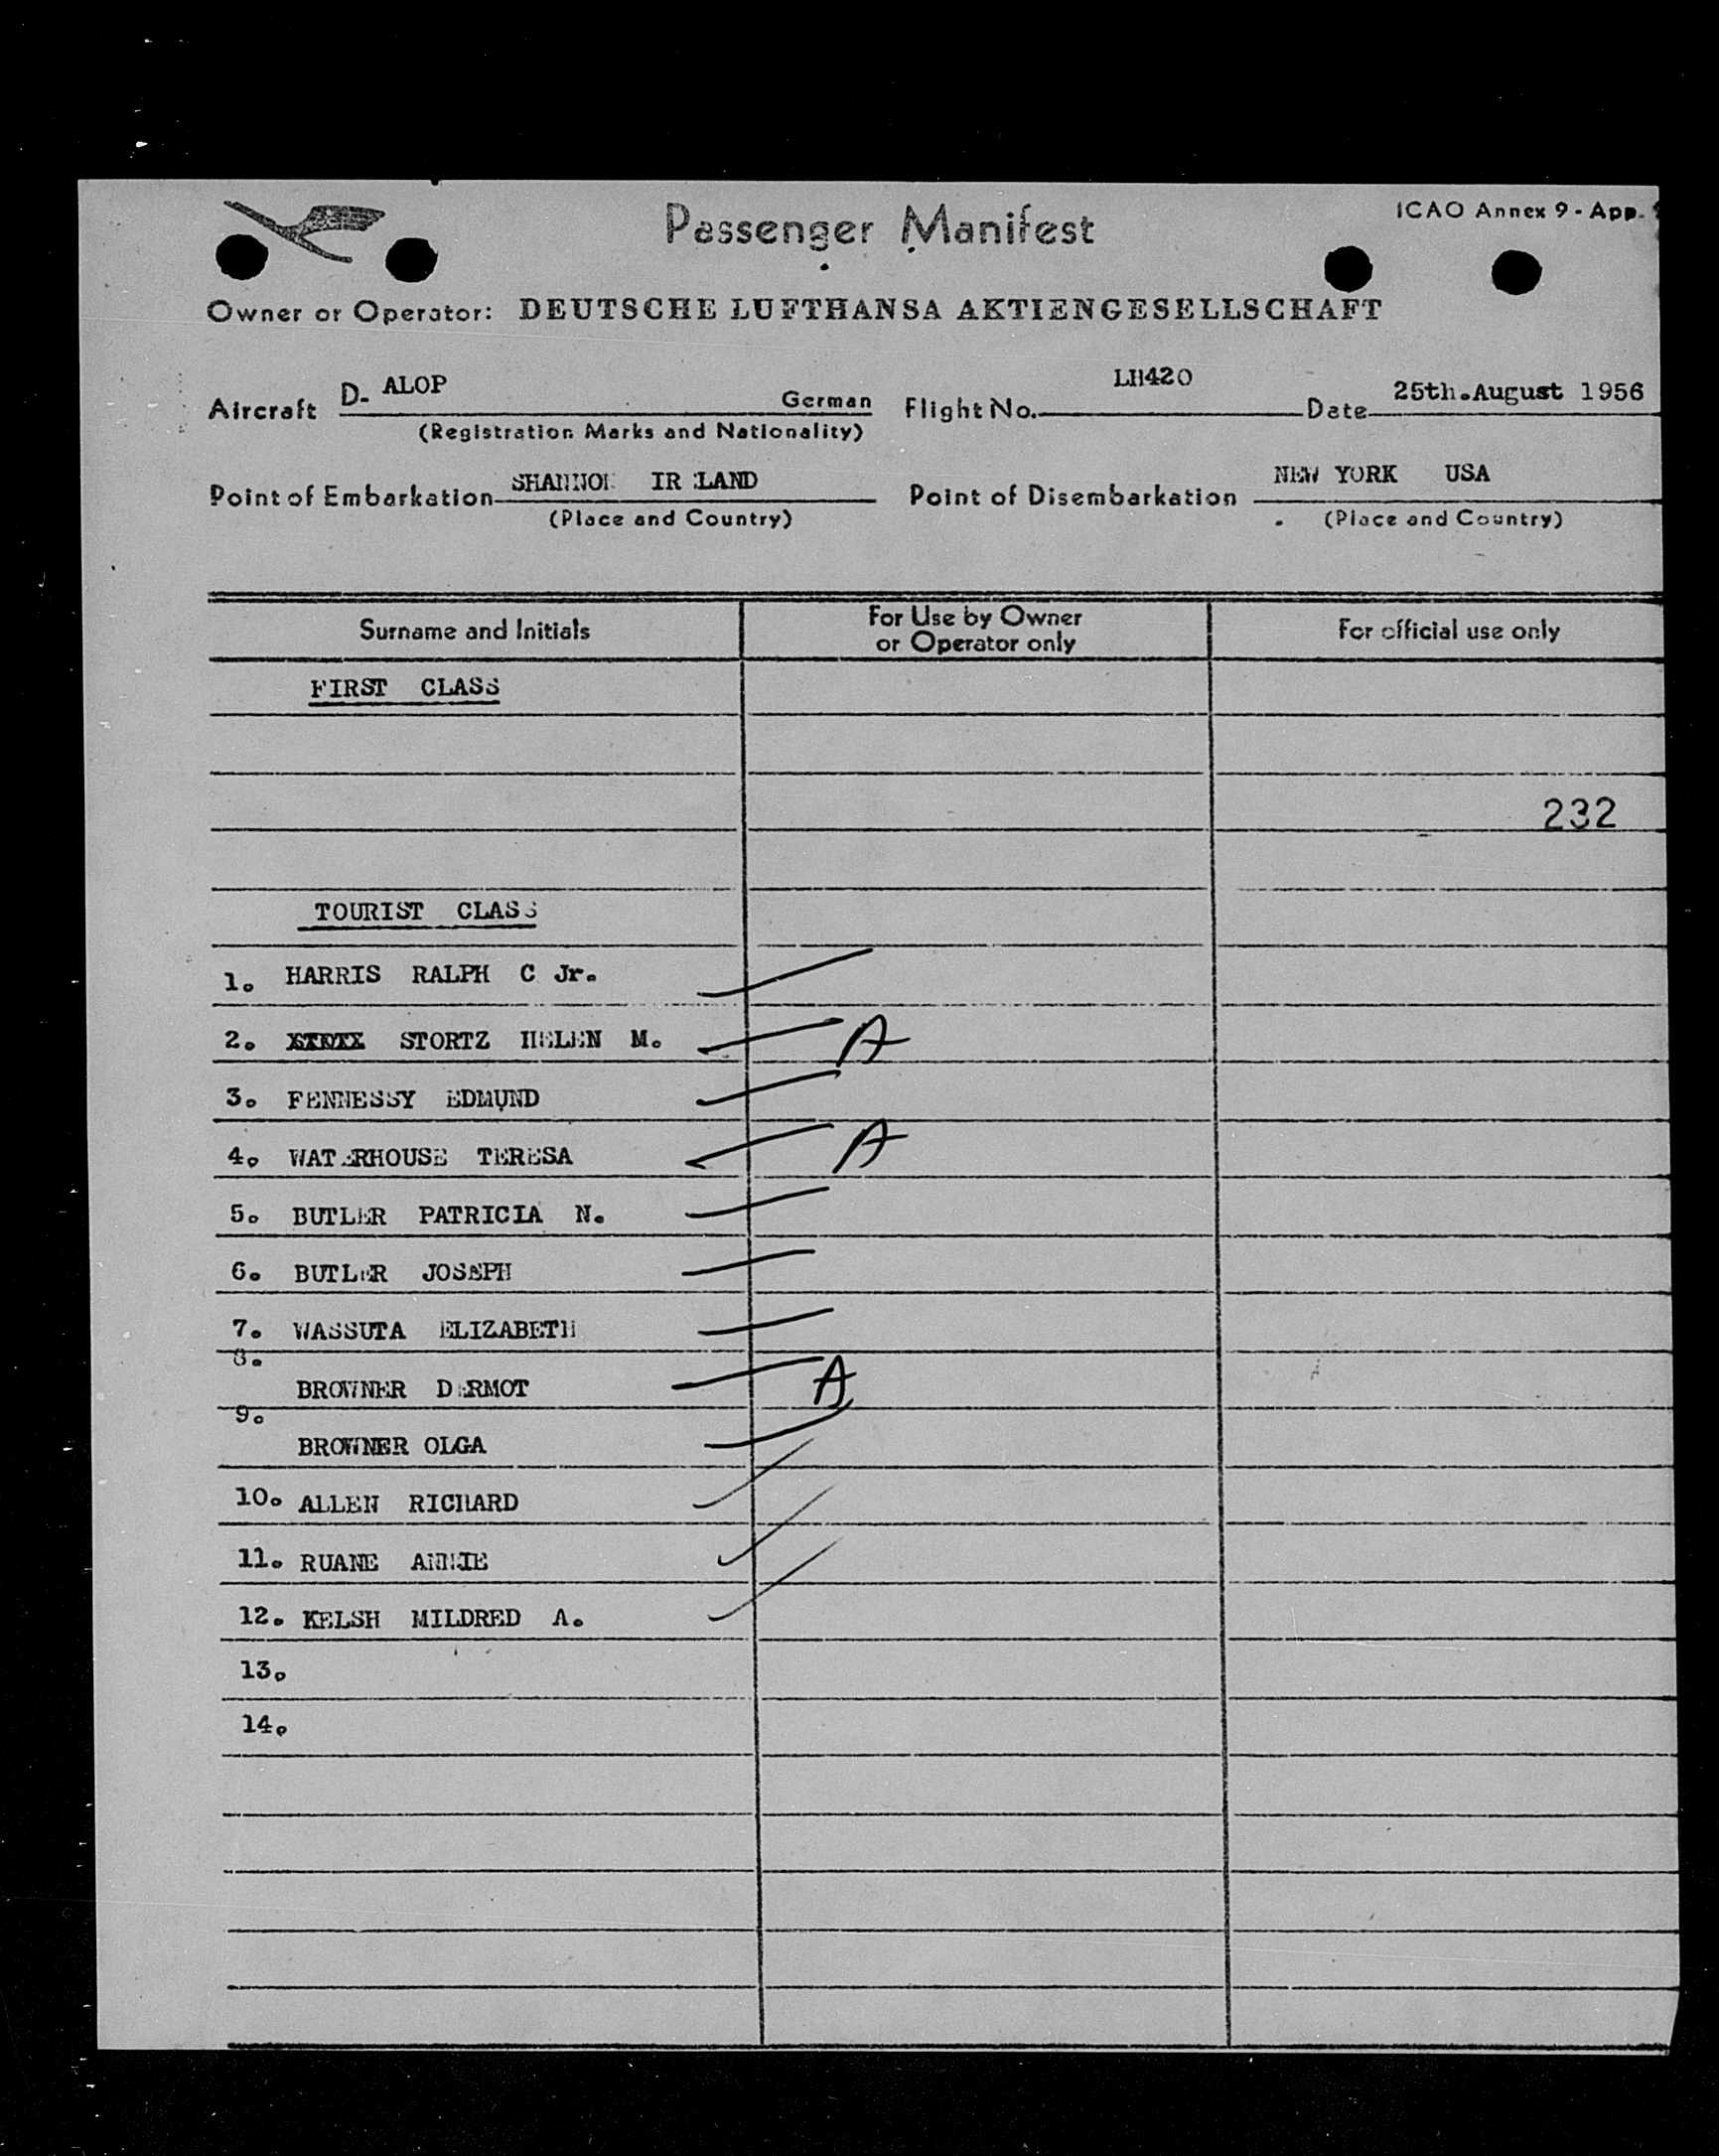 Passenger Manifest
ICAO Annex 9 - App.
Owner or Operator: DEUTSCHE LUFTHANSA AKTIENGESELLSCHAFT
Aircraft D- ALOP German Flight No. LH420 Date 25th.August 1956
(Registration Marks and Nationality)
Point of Embarkation SHANNON IRELAND Point of Disembarkation NEW YORK USA
(Place and Country) (Place and Country)
Surname and Initials
For Use by Owner
or Operator only
For official use only
FIRST CLASS
232
TOURIST CLASS
1. HARRIS RALPH C Jr.
2. STORTZ HELEN M. A
3. FENNESSY EDMUND
4. WATERHOUSE TERESA A
5. BUTLER PATRICIA N.
6. BUTLER JOSEPH
7. WASSUTA ELIZABETH
8. BROWNER DERMOT A
9. BROWNER OLGA
10. ALLEN RICHARD
11. RUANE ANNIE
12. KELSH MILDRED A.
13.
14.